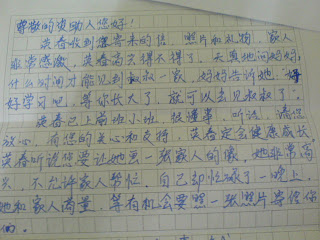 尊敬的资助人您好!
英春收到您寄来的信、照片和礼物,家人
非常感激,英春高兴得不得了,天真地问妈妈,
什么时间才能见到叔叔一家,妈妈告诉她,好
好学习吧,等你长大了,就可以去见叔叔了。
英春已上岗位小班,很懂事,听话,请您
放心,有您的关心和支持,英春定会健康成长。
英春听说您要让她画一张家人的像,她非常高
兴,不允许家人帮忙,自己却忙碌了一晚上,
她和家人商量,等有机会要照一张照片寄给你
们。